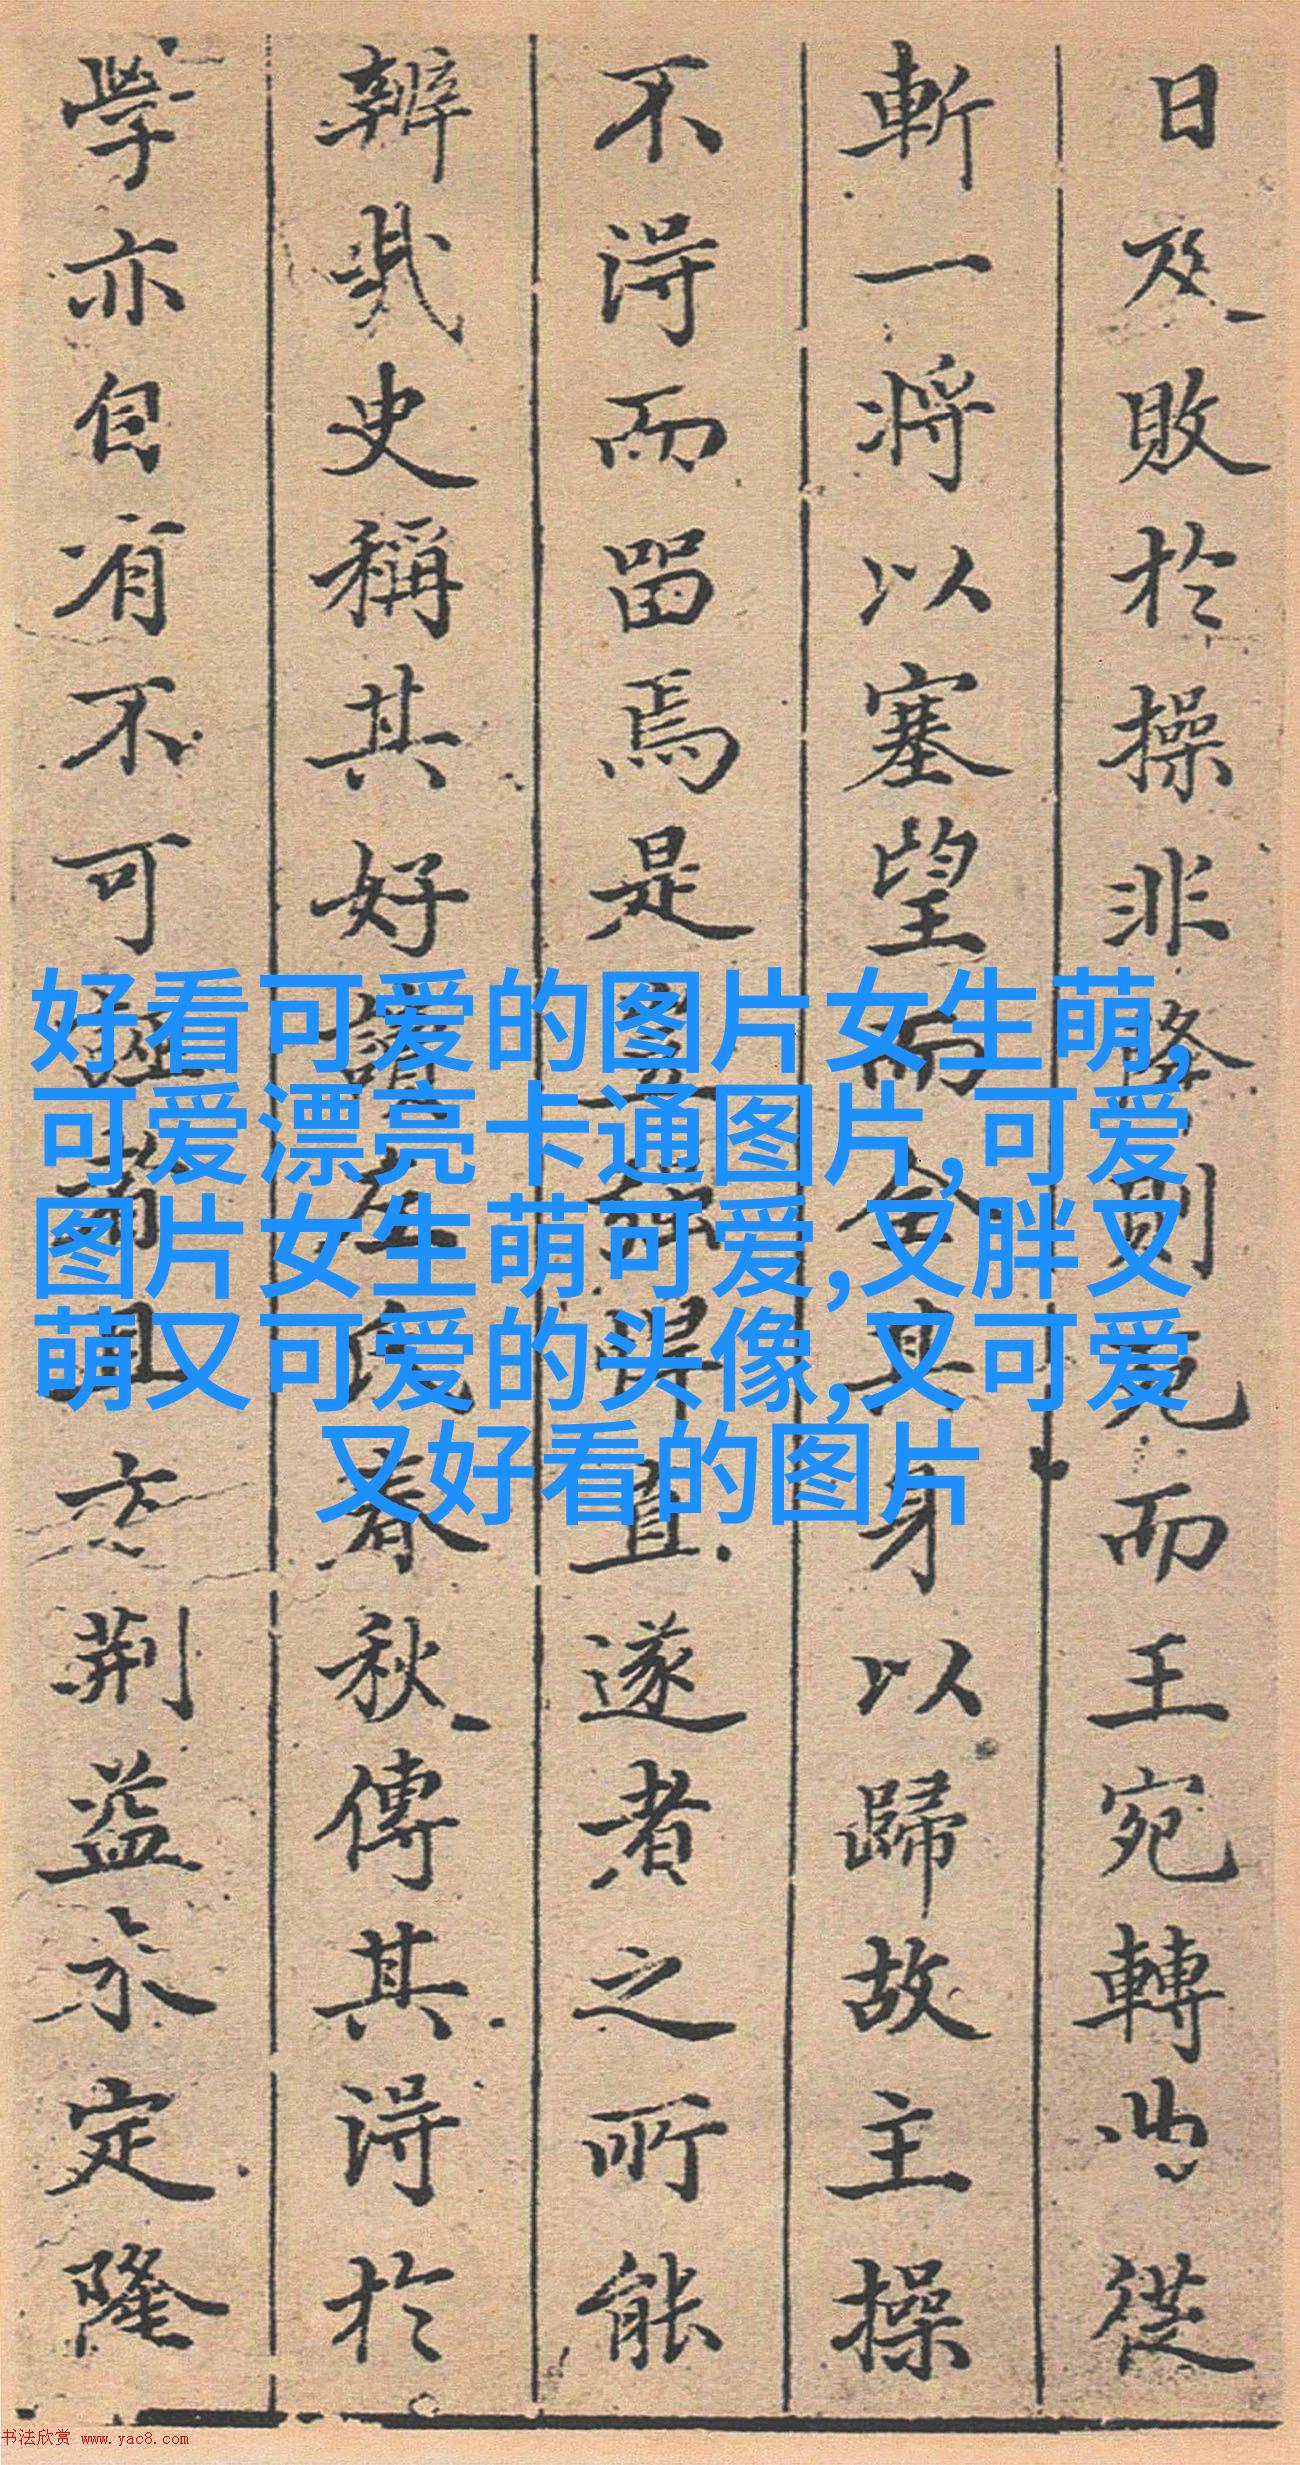 日及敗於操非降則死而王宛轉曲從
斬一將以塞望而全其身以歸故主操
不得而留焉是豈強悍直遂者之所能
辨哉史稱其好讀左氏春秋傳其得於
學亦自有不可誣者且立荆益永定隆
好看可爱的图片女生萌,
可爱漂亮卡通图片,可爱
图片女生萌可爱,又胖又
萌又可爱的头像,又可爱
又好看的图片
书法欣赏 www.yac8.com